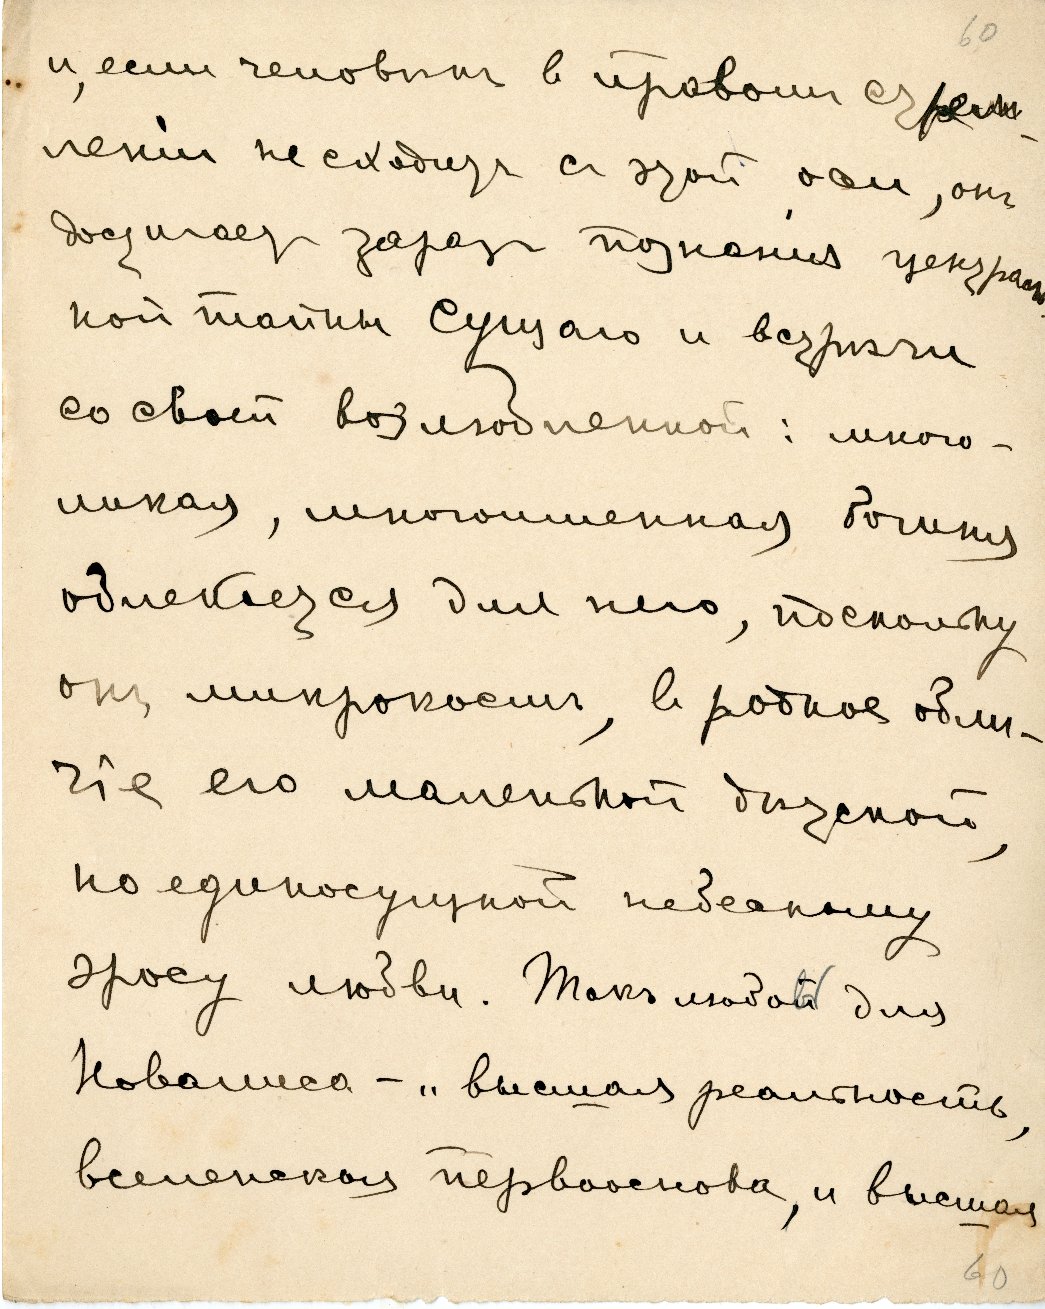 60
и, если человѣкъ в правом стрем-
леніи не сходитъ съ этой оси, онъ
достигает зараз познанія централь-
ной тайны Сущаго и встрѣчи
со своей возлюбленной: много-
ликая, многоименная богиня
облекается для него, поскольку
онъ микрокосмъ, в родное обли-
чіе его маленькой дѣтской,
но единосущной небесному
эросу любви. Такъ любовь для
Новалиса – „высшая реальность,
вселенская первооснова, и высшая
60